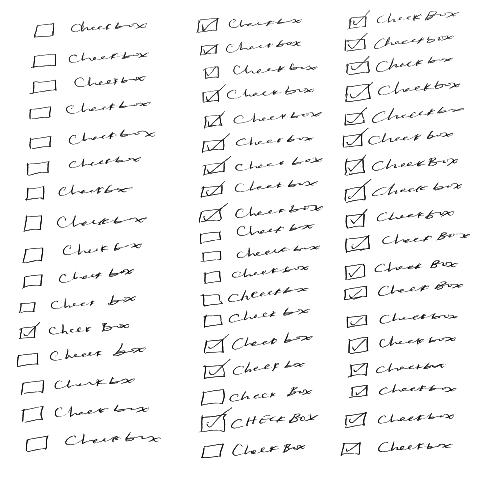 Checkbox
Checkbox
Checkbox
Checkbox
Checkbox
Checkbox
Checkbox
Checkbox
Check box
Check box
Check box
Check Box
Check box
Checkbox
Check box
Checkbox
Checkbox
Check box
Checkbox
Check box
Check box
Check box
Check box
Check box
Check box
Check box
Check box
Check box
Checkbox
Check box
Check box
Check box
Check Box
CHECK BOX
Check Box
Check Box
Checkbox
Checkbox
Checkbox
Checkbox
Checkbox
Check Box
Check box
Checkbox
Check Box
Check Box
Check Box
Checkbox
Checkbox
Checkbox
Checkbox
Checkbox
Checkbox